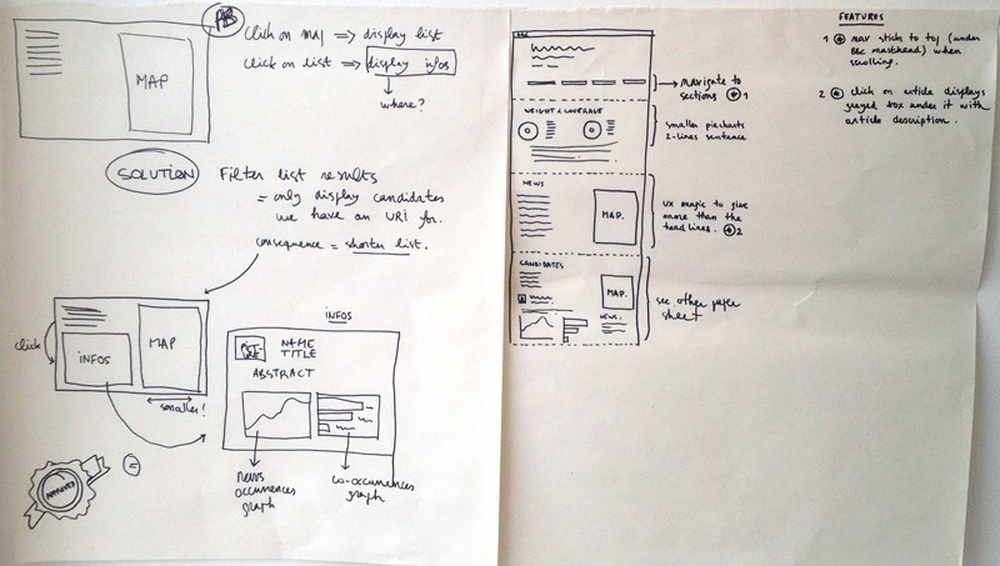 PB
Click on map => display list
Click on list => display infos
where?
MAP
SOLUTION
Filter list results
= only display candidates
we have an URI for.
consequence = shorter list.
click
INFOS
MAP
smaller!
INFOS
PICT-URE
NAME
TITLE
ABSTRACT
news
occurrences
graph
co-occurrences
graph
APPROVED
=
BBC
navigate to
sections * 1
WEIGHT & COVERAGE
smaller piecharts
2-lines sentence
NEWS
MAP.
UX magic to give
more than the
headlines. * 2
CANDIDATES
MAP.
NEWS:
see other paper
sheet
FEATURES
1 * nav sticks to top (under
BBC masthead) when
scrolling.
2 * click on article displays
greyed box under it with
article description.